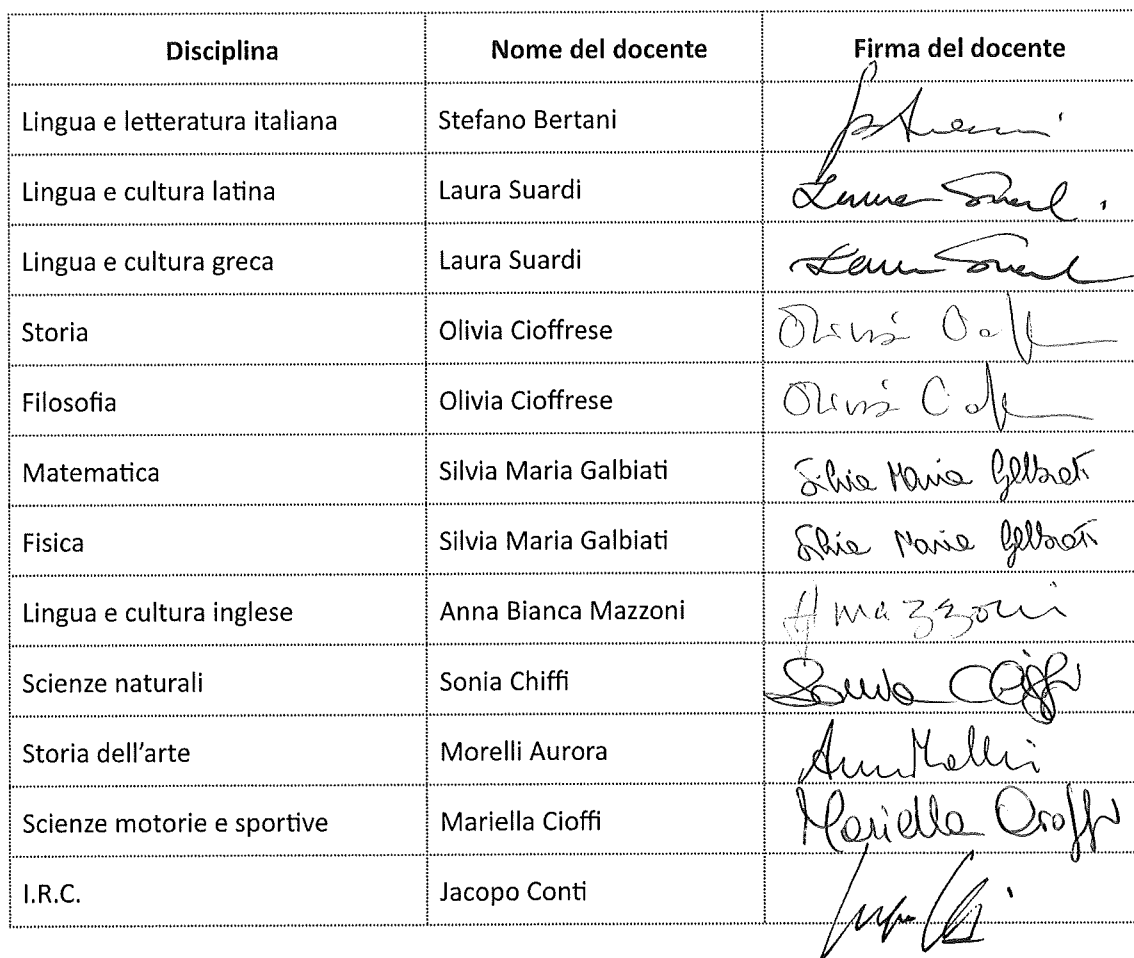 Disciplina Nome del docente Firma del docente
Lingua e letteratura italiana Stefano Bertani
Lingua e cultura latina Laura Suardi Laura Suard
Lingua e cultura greca Laura Suardi Laura Suard
Storia Olivia Cioffrese Olivia
Filosofia Olivia Cioffrese Olivia
Matematica Silvia Maria Galbiati Silvia Maria Galbiati
Fisica Silvia Maria Galbiati Silvia Maria Galbiati
Lingua e cultura inglese Anna Bianca Mazzoni A Mazzoni
Scienze naturali Sonia Chiffi Sonia Chiffi
Storia dell'arte Morelli Aurora
Scienze motorie e sportive Mariella Cioffi Mariella Cioffi
I.R.C. Jacopo Conti